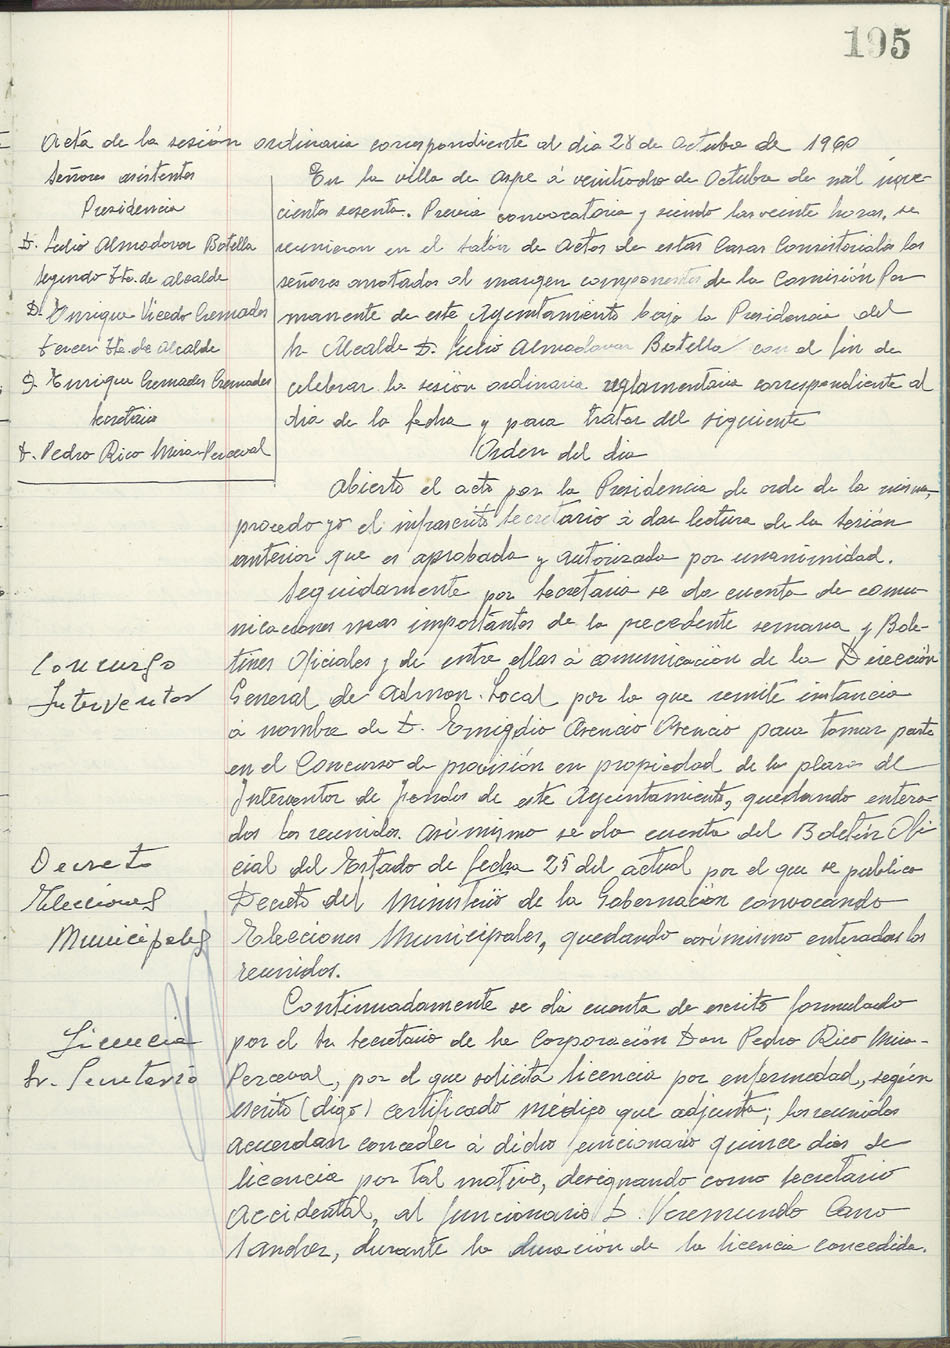 195
Acta de la sesión ordinaria correspondiente al dia 28 de Octubre de 1960
Señores asistentes
Presidencia
D. Julio Almodovar Botella
Segundo Tte. de alcalde
D. Enrique Vicedo Cremades
tercer Tte. de Alcalde
D. Enrique Cremades Cremades
Secretario
D. Pedro Rico Mira-Perceval
En la villa de Aspe á veintiocho de Octubre de mil nove-
cientos sesenta. Previa convocatoria y siendo las veinte horas, se
reunieron en el Salón de Actos de estas Casas Consistoriales los
señores anotados al margen componentes de la Comisión Per
manente de este Ayuntamiento bajo la Presidencia del
Sr. Alcalde D. Julio Almodovar Botella con el fin de
celebrar la sesión ordinaria reglamentaria correspondiente al
dia de la fecha y para tratar del siguiente
Orden del dia
Abierto el acto por la Presidencia de orde de la misma,
procedo yo el infrascrito Secretario á dar lectura de la Sesión
anterior que es aprobada y autorizada por unanimidad.
Seguidamente por Secretaria se da cuenta de comu
nicaciones mas importantes de la precedente semana y Bole-
tines Oficiales y de entre ellas á comunicación de la Dirección
General de Admon. Local por la que remite instancia
á nombre de D. Emigdio Asencio Asencio para tomar parte
en el Concurso de provisión en propiedad de la plaza de
Interventor de Fondos de este Ayuntamiento, quedando entera-
dos los reunidos. Asimismo se da cuenta del Boletín Ofi
cial del Estado de fecha 25 del actual por el que se publica
Decreto del Ministerio de la Gobernación convocando
Elecciones Municipales, quedando asimismo enterados los
reunidos.
Concurso
Interventor
Decreto
Elecciones
Municipales
Continuadamente se da cuenta de escrito formulado
por el Sr Secretario de la Corporación Don Pedro Rico Mira-
Perceval, por el que solicita licencia por enfermedad, según
escrito (digo) certificado médico que adjunta; los reunidos
acuerdan conceder á dicho funcionario quince dias de
licencia por tal motivo, designando como Secretario
Accidental, al funcionario D. Veremundo Cano
Sanchez, durante la duración de la licencia concedida.
Licencia
Sr. Secretario